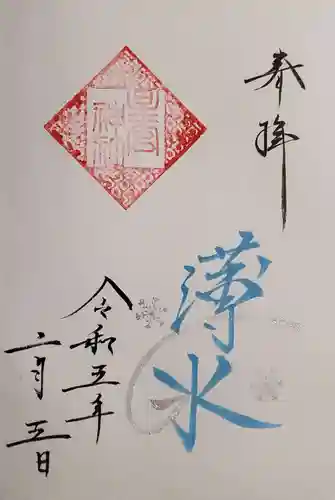 奉拝
薄氷
令和五年
二月五日